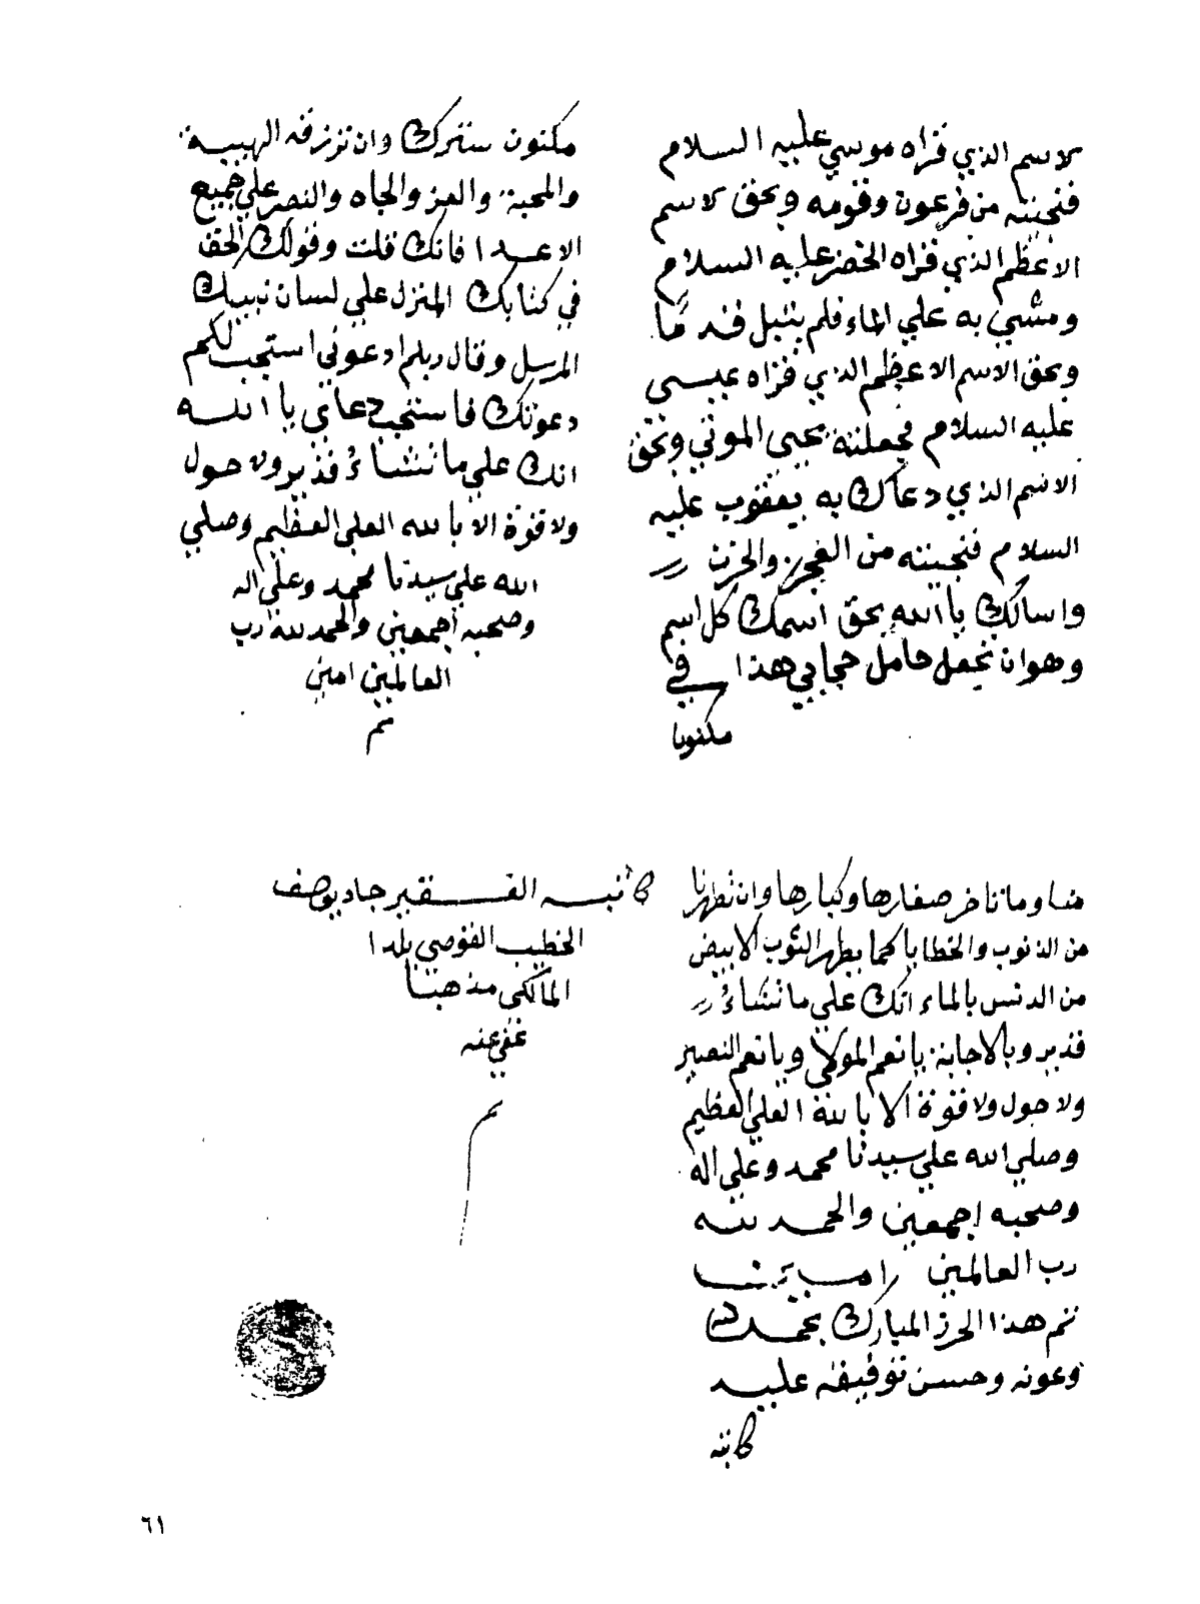 لاسم الذي قراه موسي عليه السلام
فنجيته من فرعون وقومه وبحق لاسم
الاعظم الذي قراه الخضر عليه السلام
ومشي به علي الماء فلم يبتل قدما
وبحق الاسم الاعظم الذي قراه عيسى
عليه السلام فجعلته يحيى الموتي وبحق
الاسم الذي دعاك به يعقوب عليه
السلام فنجيته من والحزن
واسالك يا الله بحق اسمك كل اسم
وهو ان تجعل حامل حجابي هذا في
مكنون
مكنون سترك وان ترزقه الهيبة
والمحبة والعز والجاه والنصر علي جميع
الاعدا فانك قلت وقولك الحق
في كتابك المنزل علي لسان نبيك
المرسل وقال ربكم ادعوني استجب لكم
دعوتك فاستجب دعاى يا الله
انك علي ما تشاء قدير ولا حول
ولا قوة الا بالله العلى العظيم وصلي
الله علي سيدنا محمد وعلى اله
وصحبه اجمعين والحمد لله رب
العالمين امين
تم
منا وما تاخر صغارها وكبارها وان تطهرنا
من الذنوب والخطايا كما يطهر الثوب الابيض
من الدنس بالماء انك علي ما تشاء
قدير وبالاجابة يا نعم المولى ويا نعم النصير
ولا حول ولا قوة الا بالله العلي العظيم
وصلي الله علي سيدنا محمد وعلى اله
وصحبه اجمعين والحمد لله
رب العالمين امين
تم هذا الحرز المبارك بحمد الله
وعونه وحسن توفيقه عليد
كاتبه
كاتبه الفقير جاد يوصف
الخطيب القوصى بلدا
المالكى مذهبا
عفي عنه
تم
٦١